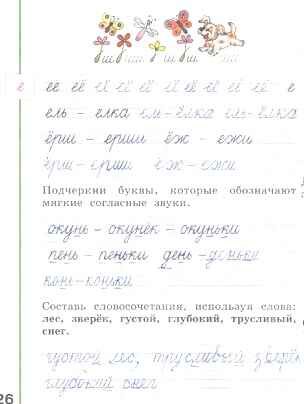 ш ш ш ш
е её её её её её её её её её её е
ель – ёлка ель – ёлка ель – ёлка
ёрш – ерши ёж – ежи
ёрш – ерши ёж – ежи
Подчеркни буквы, которые обозначают
мягкие согласные звуки.
окунь – окунёк – окуньки
пень – пеньки день – деньки
конь – коньки
Составь словосочетания, используя слова:
лес, зверёк, густой, глубокий, трусливый,
снег.
густой лес, трусливый зверёк
глубокий снег
26